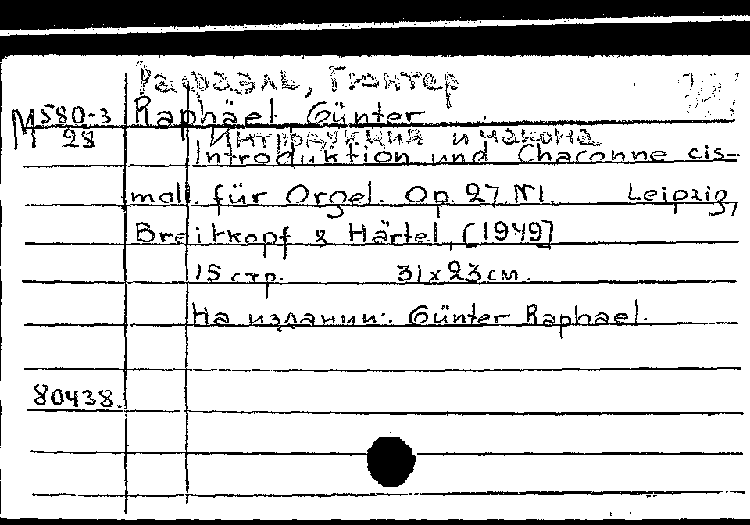 Рафаэль, Гюнтер
М580-3 Raphäel Günter
28 Интродукция и чакона
Introduktion und Chaconne cis-
moll für Orgel. Op. 27 N1. Leipzig,
Breitkopf & Härtel, [1949]
15 стр. 31x23 см.
На издании: Günter Raphael.
80438.